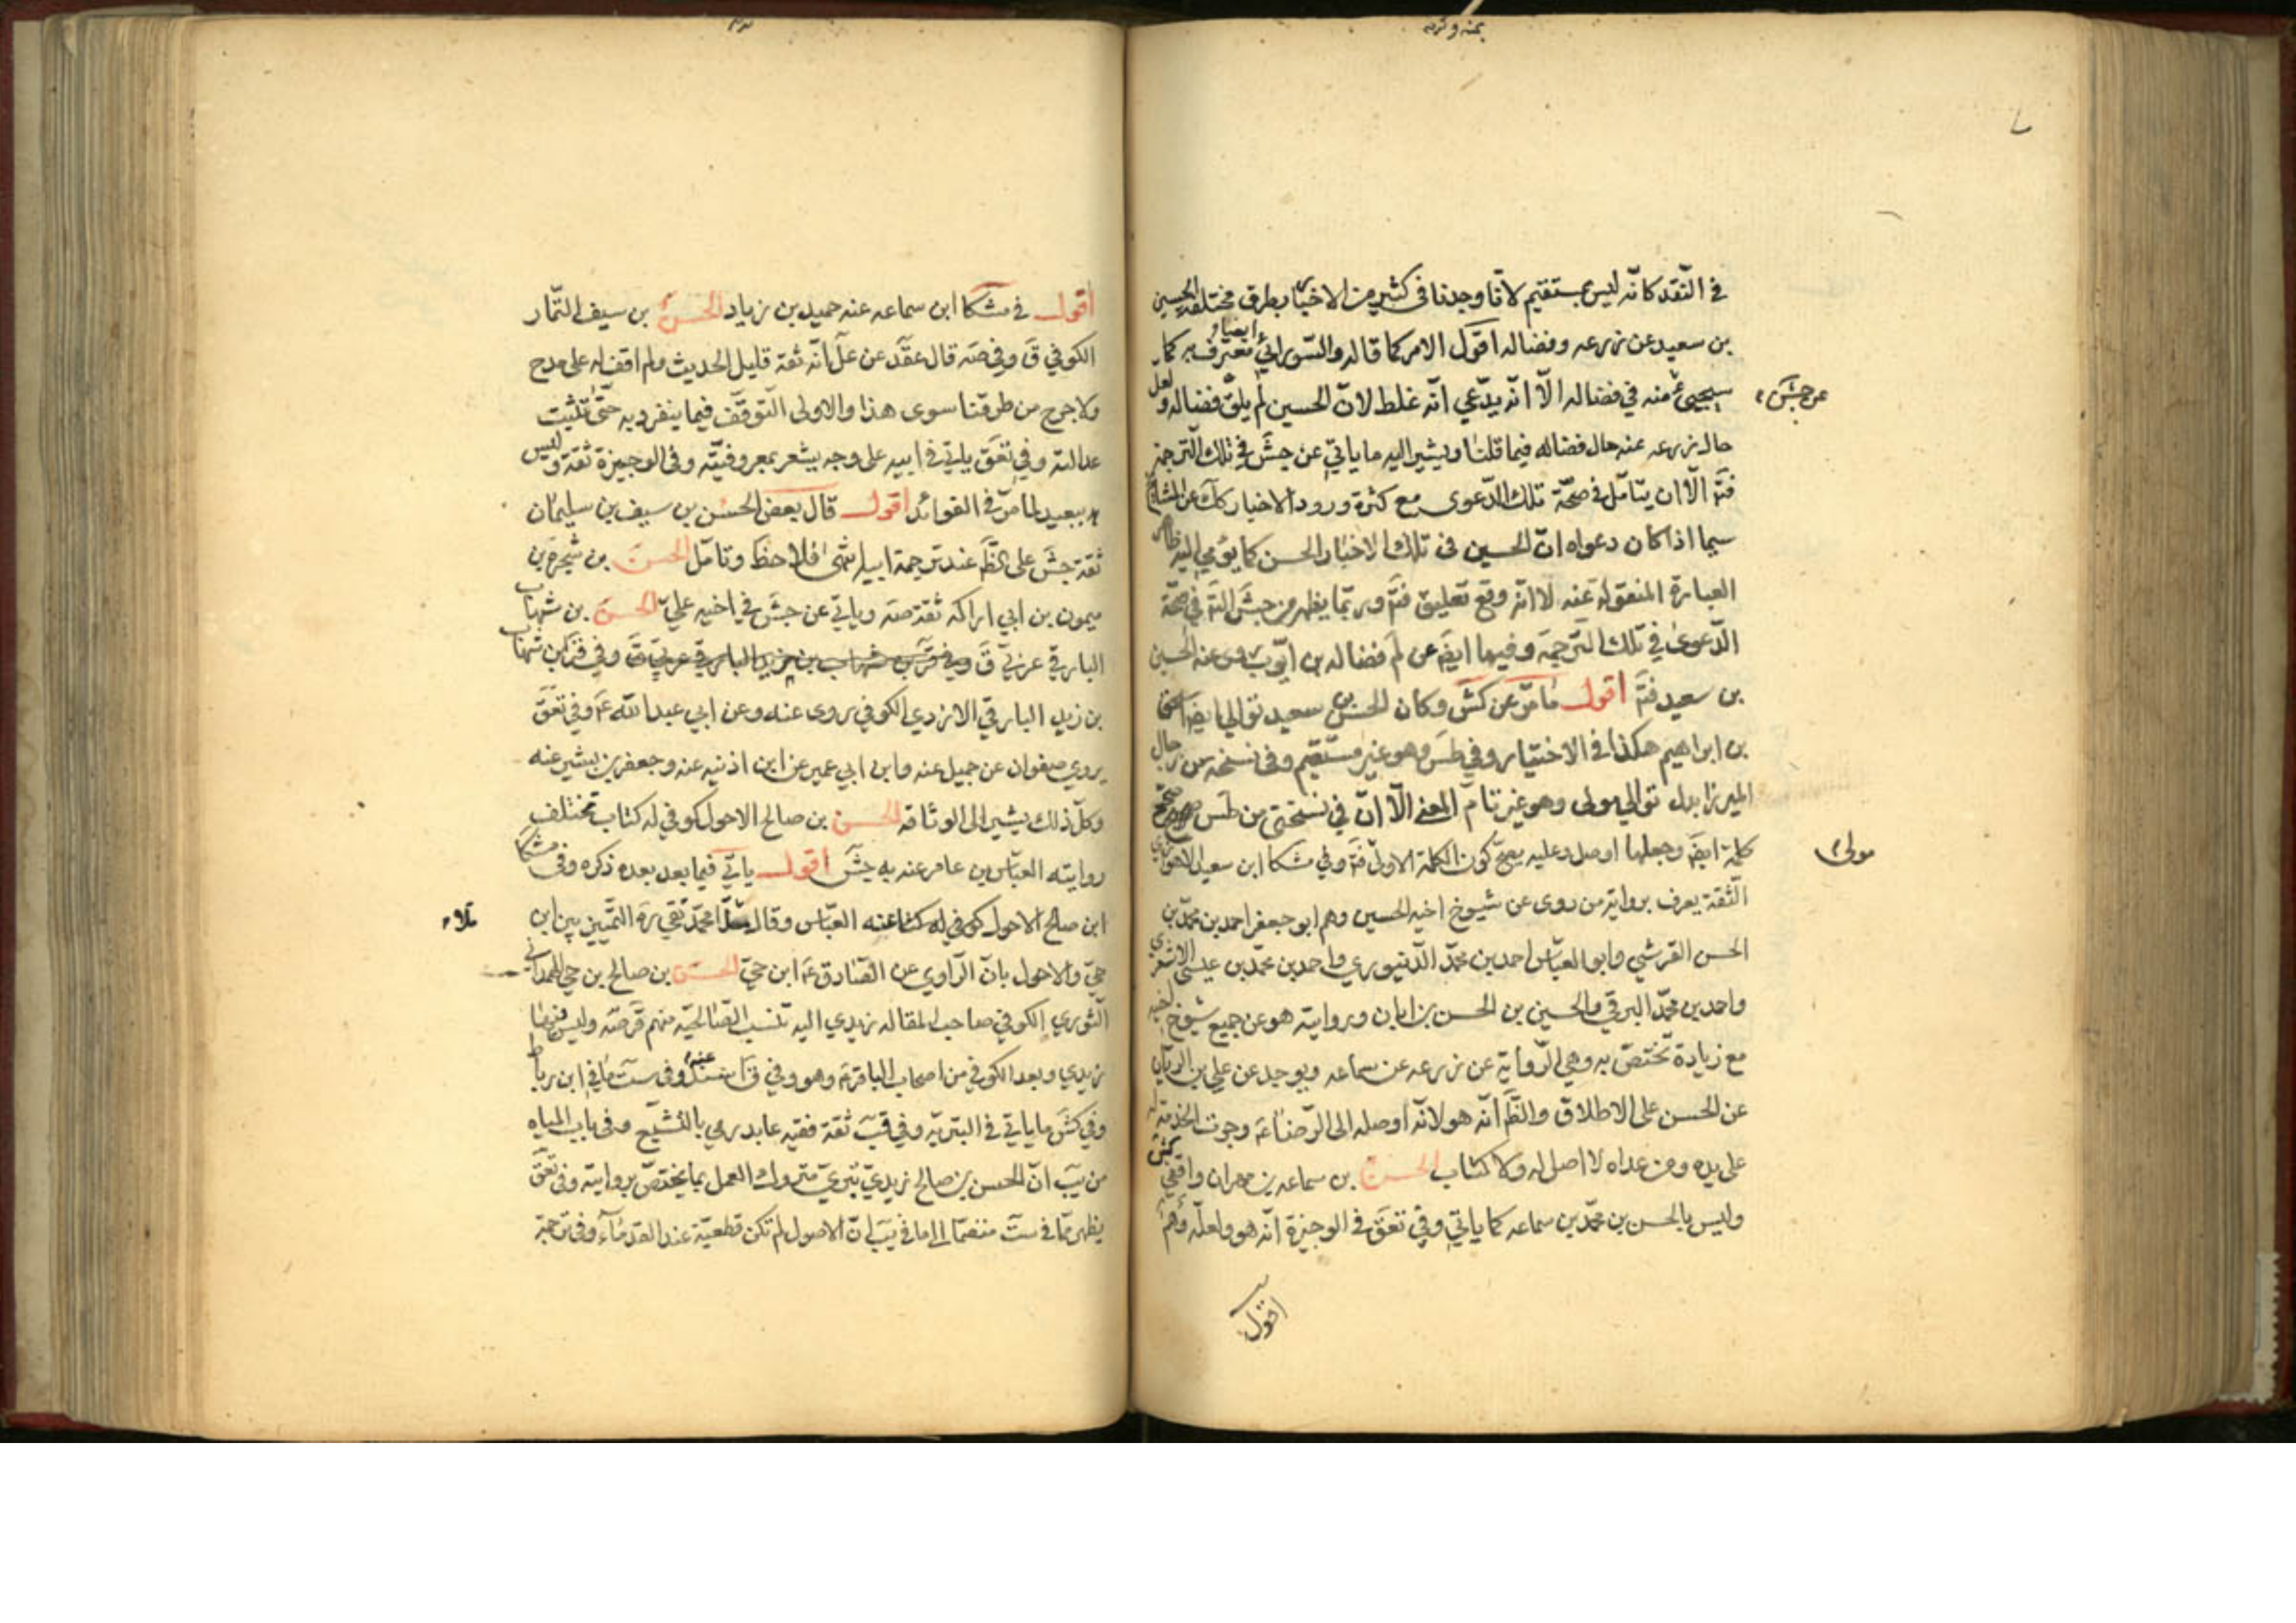 في النقد كانه ليس بمستقيم لانا وجدنا في كثير من الاخبار بطرق مختلفة الحسين
بن سعيد عن زرعه وفضاله اقول الامر كما قاله والسورائي ايضا معترف به كما
سيجيئ منه في فضاله الا انه يدعي انه غلط لان الحسين لم يلق فضاله ولعل
عن جش
حال زرعه عنه حال فضاله فيما قلنا ويشير اليه ما ياتي عن جش في تلك الترجمة
فتم الا ان يتامل في صحة تلك الدعوى مع كثرة ورود الاخبار كك عن المشايخ
سيما اذا كان دعواه ان الحسين في تلك الاخبار الحسن كما يومي اليه ظاهر
العبارة المنقولة عنه لا انه وقع تعليق فتم وربما يظهر من جش التم في صحة
الدعوى في تلك الترجمة وفيها ايضه عن لم فضاله بن ايوب روى عنه الحسين
بن سعيد فتم اقول ما مر عن كش وكان الحسن بن سعيد توالي ايضه اسحق
بن ابراهيم هكذا في الاختيار وفي طس وهو غير مستقيم وفي نسخه من رجال
الميرزا بدل توالي مولى وهو غير تام المعنى الا ان في نسختي من طس صحح
كلمة ايضه وجعلها اوصل وعليه يصح كون الكلمة الاولى فتم وفي مشكا ابن سعيد الاهوازي
مولى
الثقة يعرف بروايته من روى عن شيوخ اخيه الحسين وهم ابو جعفر احمد بن محمد بن
الحسن القرشي وابو العباس احمد بن محمد الدينوري واحمد بن محمد بن عيسى الاشعري
واحمد بن محمد البرقي والحسين بن الحسن بن ابان وبروايته هو عن جميع شيوخ اخيه
مع زيادة تختص به وهي الرواية عن زرعه عن سماعه ويوجد عن علي بن الريان
عن الحسن على الاطلاق والظ انه هو لانه اوصله الى الرضا ع وجرت الخدمة له
على يده ومن عداه لا اصل له ولا كتاب الحسن بن سماعه بن مهران واقفي كش
وليس بالحسن بن محمد بن سماعه كما ياتي وفي تعق في الوجيزة انه هو ولعله وهم
اقول
اقول في مشكا ابن سماعه عنه حميد بن زياد الحسن بن سيف التمار
الكوفي ق وفي صه قال عقد عن عل انه ثقة قليل الحديث ولم اقف له على مدح
ولا جرح من طرقنا سوى هذا والاولى التوقف فيما ينفرد به حتى تثبت
عدالته وفي تعق ياتي في ابيه على وجه يشعر بمعروفيته وفي الوجيزة ثقة وليس
ببعيد لما مر في الفوائد اقول قال بعض الحسن بن سيف بن سليمان
ثقة جش على الظ عند ترجمة ابيه انتهى فلاحظ وتامل الحسن بن شجرة بن
ميمون بن ابي اراكه ثقة صه وياتي عن جش في اخيه علي الحسن بن شهاب
البارقي عربي ق وفي قر بن شهاب بن يزيد البارقي عربي ق وفي قر ابن شهاب
بن زيد البارقي الازدي الكوفي روى عنه وعن ابي عبد الله ع وفي تعق
يروي صفوان عن جميل عنه وابن ابي عمير عن ابن اذنيه عنه وجعفر بن بشير عنه
وكل ذلك يشير الى الوثاقه الحسن بن صالح الاحول كوفي له كتاب تختلف
روايته العباس بن عامر عنه به جش اقول ياتي فيما بعد بعده ذكره وفي مشكا
ابن صالح الاحول كوفي له كتا عنه العباس وقال محمد تقي ره التميز بين ابن
حي والاحول بان الراوي عن الصادق ع ابن حي الحسن بن صالح بن حي الهمداني
الثوري الكوفي صاحب المقاله زيدي اليه تنسب الصالحيه منهم قر صه وليس فيها
زيدي وبعد الكوفي من اصحاب الباقر ع وهو وفي ق عنه وفي ست ما في ابن رباط
وفي كش ما ياتي في البتريه وفي قب ثقة فقيه عابد رمي بالتشيع وفي باب المياه
من يب ان الحسن بن صالح زيدي بتري متروك العمل بما يختص بروايته وفي تعق
يظهر مما في ست منضما الى ما في يب ان الاصول لم تكن قطعية عند القدماء وفي ترجمة